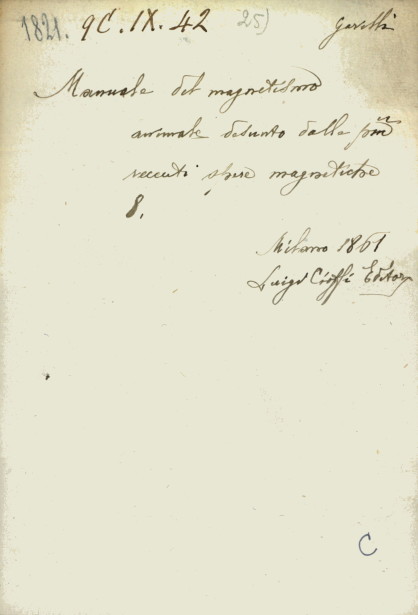 1821. 9C. IX. 42 25) Garelli
Manuale del magnetismo
animale desunto dalle più
recenti opere magnetiche
8.
Milano 1861
Luigi Cioffi Editore
C